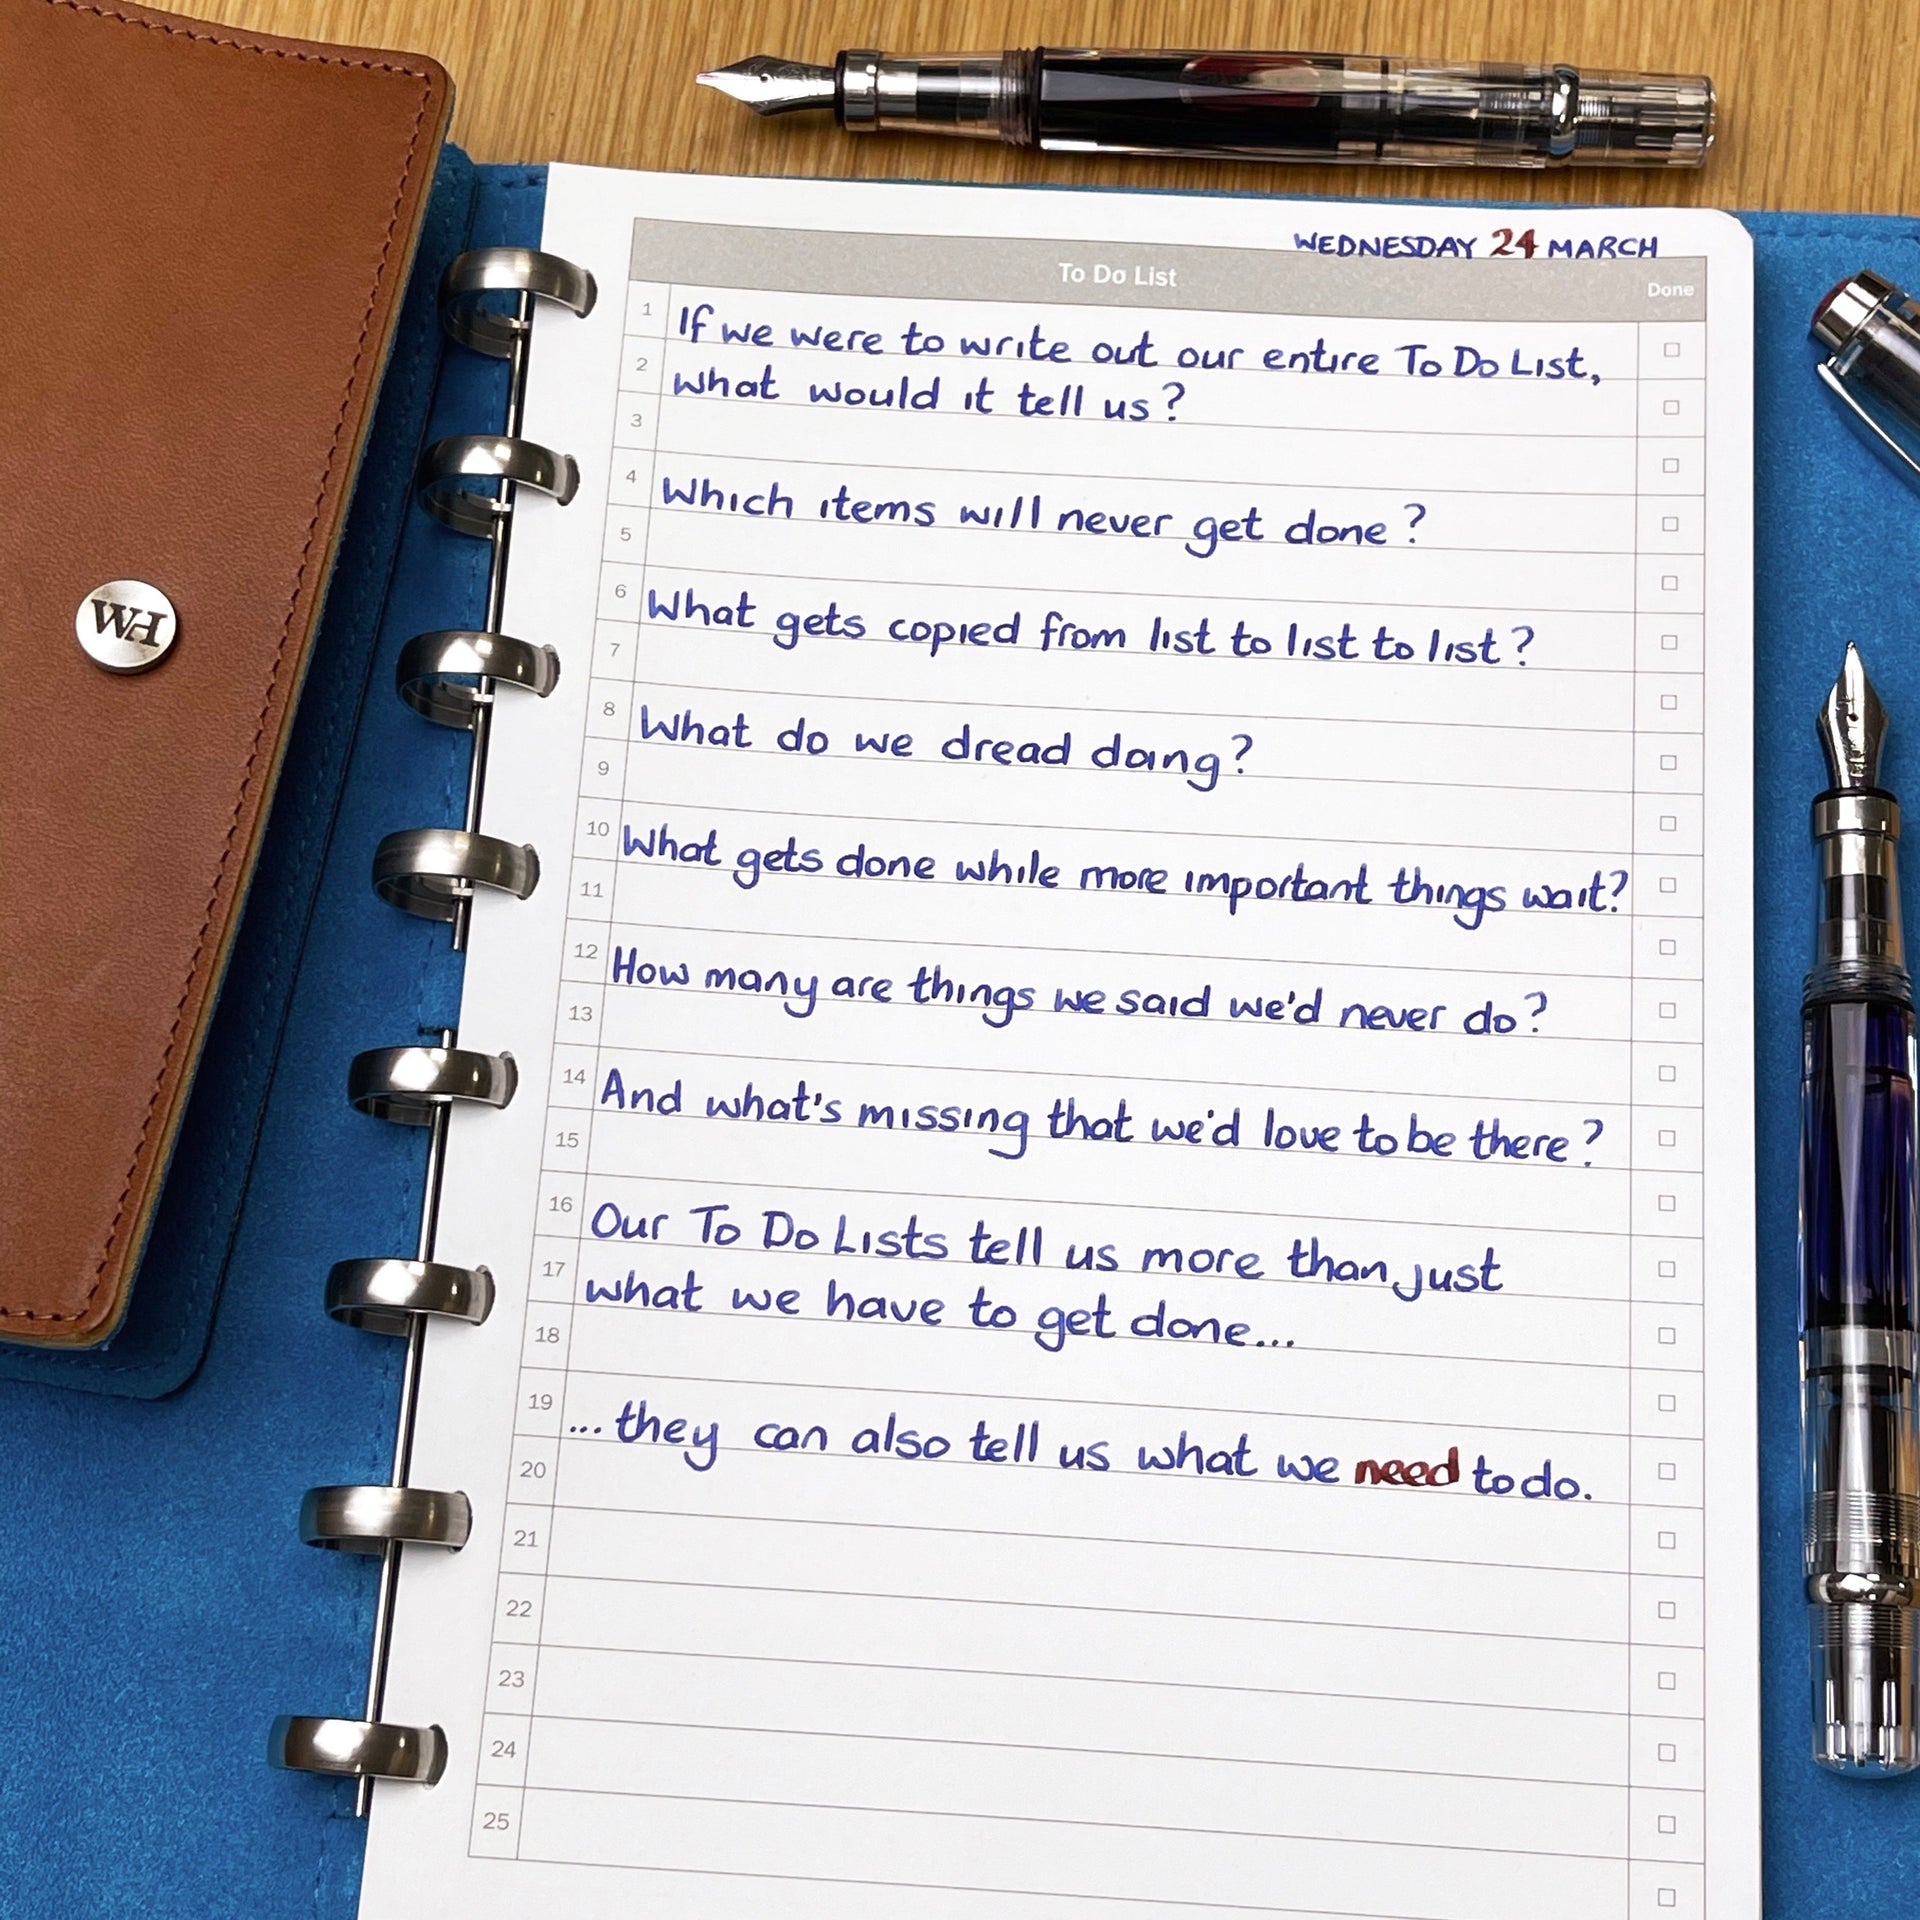 WH
WEDNESDAY 24 MARCH
To Do List
Done
1 If we were to write out our entire To Do List,
2 what would it tell us?
3
4 Which items will never get done?
5
6 What gets copied from list to list to list?
7
8 What do we dread doing?
9
10 What gets done while more important things wait?
11
12 How many are things we said we'd never do?
13
14 And what's missing that we'd love to be there?
15
16 Our To Do Lists tell us more than just
17 what we have to get done...
18
19 ...they can also tell us what we need to do.
20
21
22
23
24
25